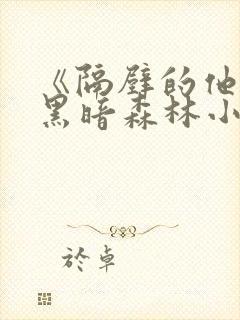 《隔壁的他
黑暗森林小
於卓